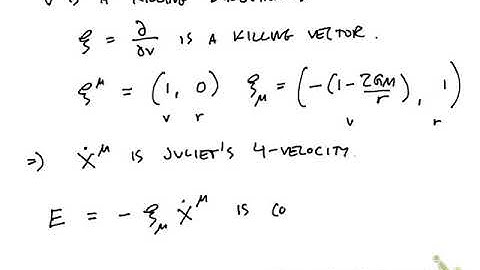 IS A KILLING
ξ = ∂/∂v IS A KILLING VECTOR.
ξ^μ = (1, 0) ξ_μ = (-(1 - 2GM/r), 1)
v r v r
⇒) Ẋ^μ IS JULIET'S 4-VELOCITY.
E = - ξ_μ Ẋ^μ IS CO